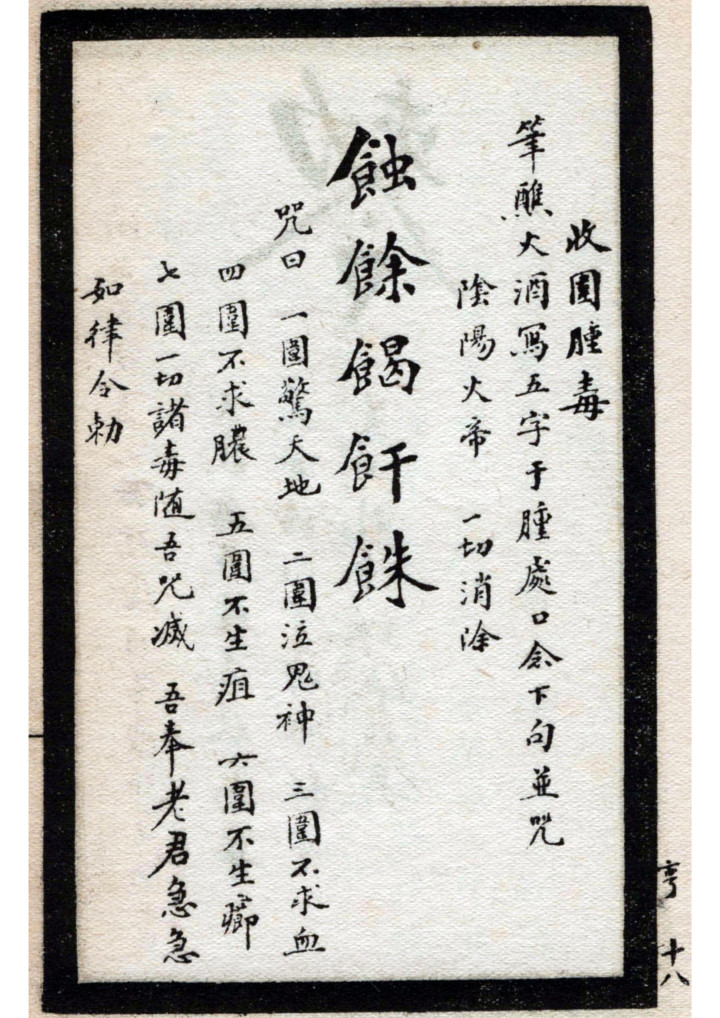 收圍腫毒
筆醮火酒寫五字于腫處口念下句並咒
陰陽火帝 一切消除
蝕餘餲飦䬡
咒曰 一圍驚天地 二圍泣鬼神 三圍不求血
四圍不求膿 五圍不生疽 六圍不生癤
七圍一切諸毒随吾咒滅 吾奉老君急急
如律令勅
亨 十八